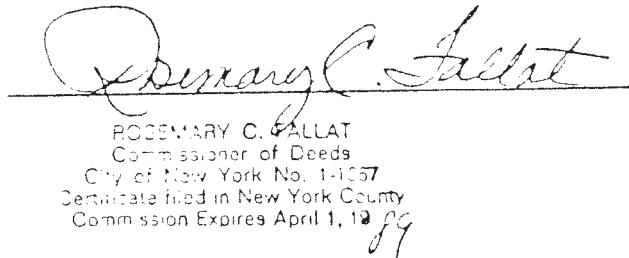 Rosemary C. Fallat
ROSEMARY C. FALLAT
Commissioner of Deeds
City of New York No. 1-1357
Certificate filed in New York County
Commission Expires April 1, 1989